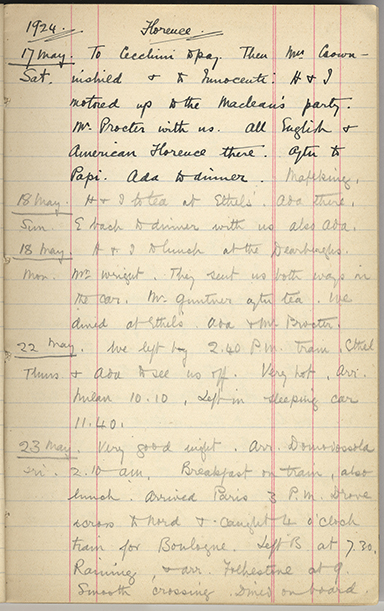 1924. Florence.
17 May. To Cecchini to pay. Then Mrs Crown-
Sat. inshield & to Innocenti. H & I
motored up to the Maclean's party.
Mr. Procter with us. All English &
American Florence there. After to
Papi. Ada to dinner. Mafeking.
18 May. H & I to tea at Ethel's. Ada there.
Sun. E back to dinner with us also Ada.
18 May H & I to lunch at the
Mon. Mr Wright. They sent us both ways in
the car. Mr. Guntner after tea. We
dined at Ethels. Ada & Mr Procter.
22 May. We left by 2.40 P.M. train. Ethel
Thurs & Ada to see us off. Very hot. Arr.
Milan 10.10, left in sleeping car
11.40.
23 May. Very good night. Arr. Domodossola
Fri. 2.10 am. Breakfast on train, also
lunch. Arrived Paris 3 P.M. Drove
across to Nord & caught 4 o'clock
train for Boulogne. Left B at 7.30.
Raining, & arr. Folkestone at 9.
Smooth crossing. Dined on board